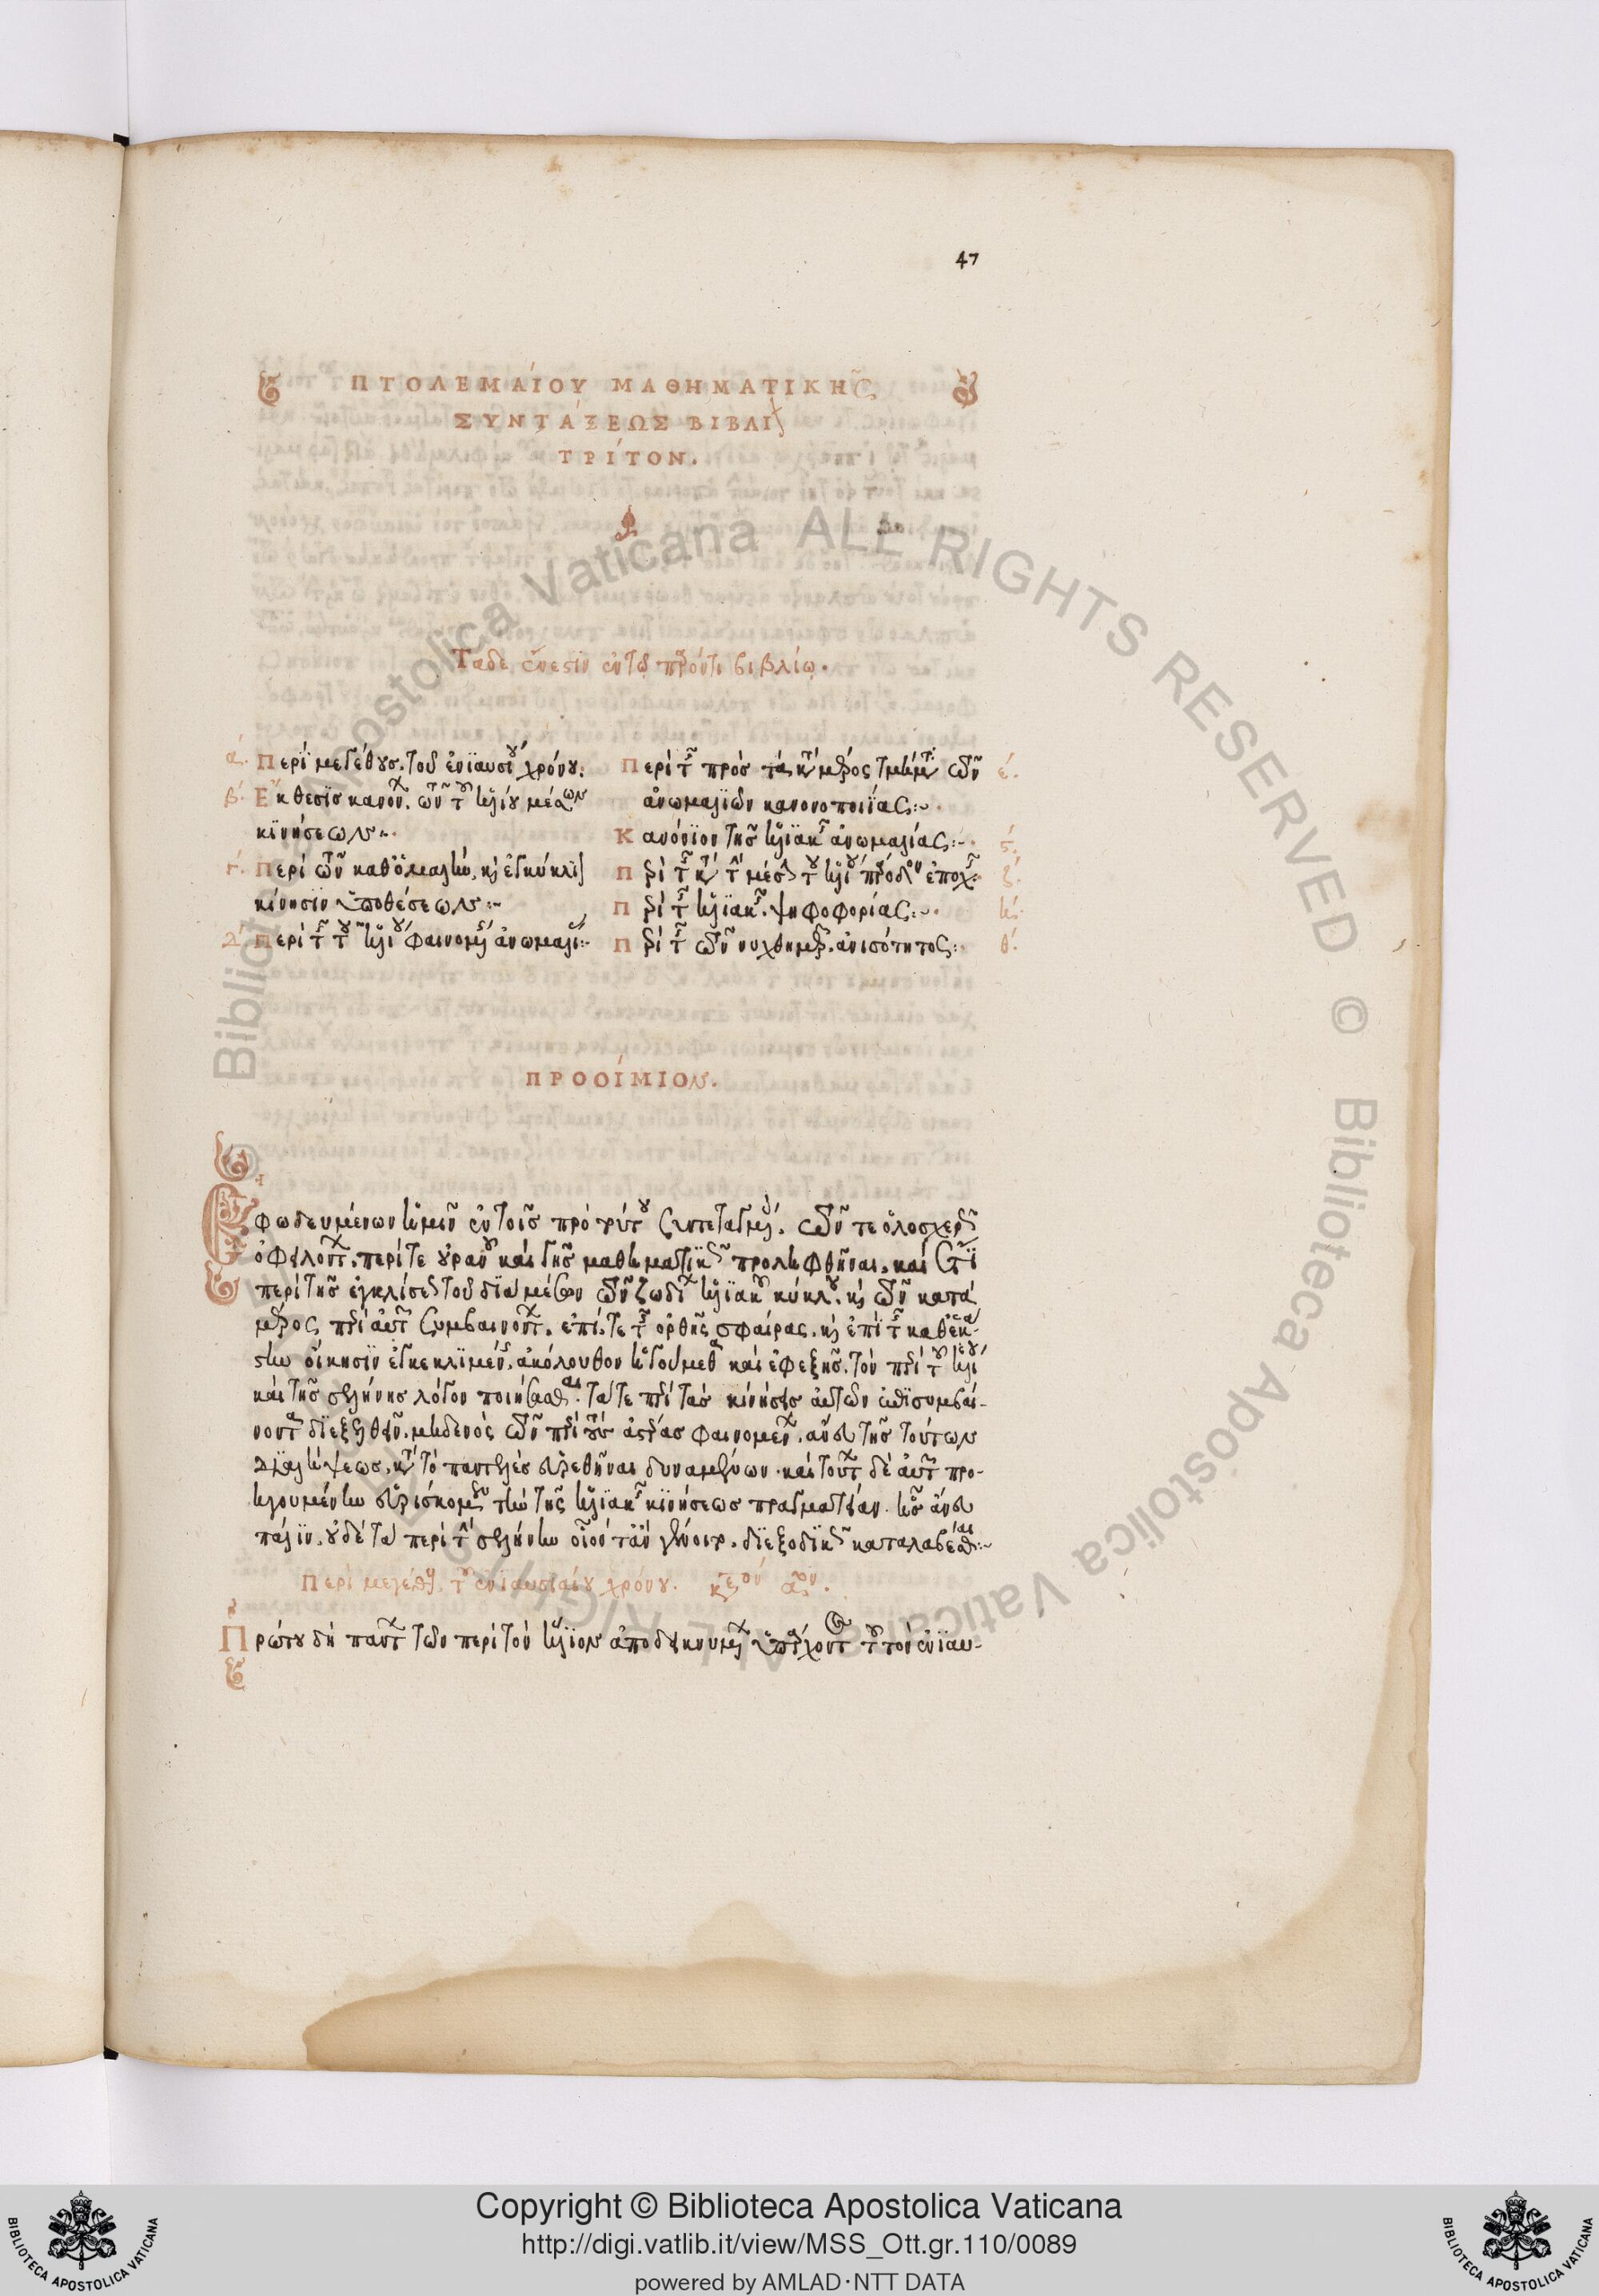 47
ΠΤΟΛΕΜΑΊΟΥ ΜΑΘΗΜΑΤΙΚΗ͂Ϲ
ΣΥΝΤΆΞΕΩΣ ΒΙΒΛΙ
ΤΡΊΤΟΝ.
Τάδε ἔνεστιν ἐν τῷ παρόντι βιβλίῳ.
α. Περὶ μεγέθους τοῦ ἐνιαυσίου χρόνου:
β. Ἔκθεσις κανόνων τῶν τοῦ ἡλίου μέσων
κινήσεων:
γ. Περὶ τῶν καθ' ὁμαλὴν καὶ ἐγκύκλιον
κίνησιν ὑποθέσεων:
δ. Περὶ τῆς τοῦ ἡλίου φαινομένης ἀνωμαλίας:
Περὶ τῆς πρὸς τὰ κατὰ μέρος τμήματα τῶν ε.
ἀνωμαλιῶν κανονοποιΐας:
Κανόνιον τῆς ἡλιακῆς ἀνωμαλίας: ϛ.
Περὶ τῆς κατὰ τὴν μέσην τοῦ ἡλίου πάροδον ἐποχῆς: ζ.
Περὶ τῆς ἡλιακῆς ψηφοφορίας: η.
Περὶ τῆς τῶν νυχθημέρων ἀνισότητος: θ.
ΠΡΟΟΊΜΙΟΝ.
Ἐφωδευμένων ἡμῖν ἐν τοῖς πρὸ τούτου συντεταγμένοις τῶν τε ὁλοσχερῶς
ὀφειλόντων περί τε οὐρανοῦ καὶ γῆς μαθηματικῶς προληφθῆναι, καὶ ἔτι
περὶ τῆς ἐγκλίσεως τοῦ διὰ μέσων τῶν ζωδίων ἡλιακοῦ κύκλου, καὶ τῶν κατὰ
μέρος περὶ αὐτὸν συμβαινόντων ἐπί τε τῆς ὀρθῆς σφαίρας καὶ ἐπὶ τῆς καθ' ἑκά-
στην οἴκησιν ἐγκεκλιμένης, ἀκόλουθον ἡγούμεθα καὶ ἐφεξῆς τὸν περὶ τοῦ ἡλίου
καὶ τῆς σελήνης λόγον ποιήσασθαι, τά τε περὶ τὰς κινήσεις αὐτῶν ἐπισυμβαί-
νοντα διεξελθεῖν, μηδενὸς τῶν περὶ τοὺς ἀστέρας φαινομένων ἄνευ τῆς τούτων
διαλήψεως κατὰ τὸ παντελὲς εὑρεθῆναι δυναμένων. καὶ τούτων δὲ αὐτῶν προ-
ηγουμένην εὑρίσκομεν τὴν τῆς ἡλιακῆς κινήσεως πραγματείαν, ἧς ἄνευ
πάλιν οὐδὲ τὰ περὶ τὴν σελήνην οἷόν τ' ἂν γένοιτο διεξοδικῶς καταλαβέσθαι:
Περὶ μεγέθους τοῦ ἐνιαυσιαίου χρόνου.
Πρώτου δὴ πάντων τῶν περὶ τὸν ἥλιον ἀποδεικνυμένων ὑπάρχοντος τοῦ τὸν ἐνιαυ-
© Biblioteca Apostolica Vaticana ALL RIGHTS RESERVED © Biblioteca Apostolica Vaticana ALL RIGHTS RESERVED
Copyright © Biblioteca Apostolica Vaticana
http://digi.vatlib.it/view/MSS_Ott.gr.110/0089
powered by AMLAD·NTT DATA
BIBLIOTECA APOSTOLICA VATICANA
BIBLIOTECA APOSTOLICA VATICANA